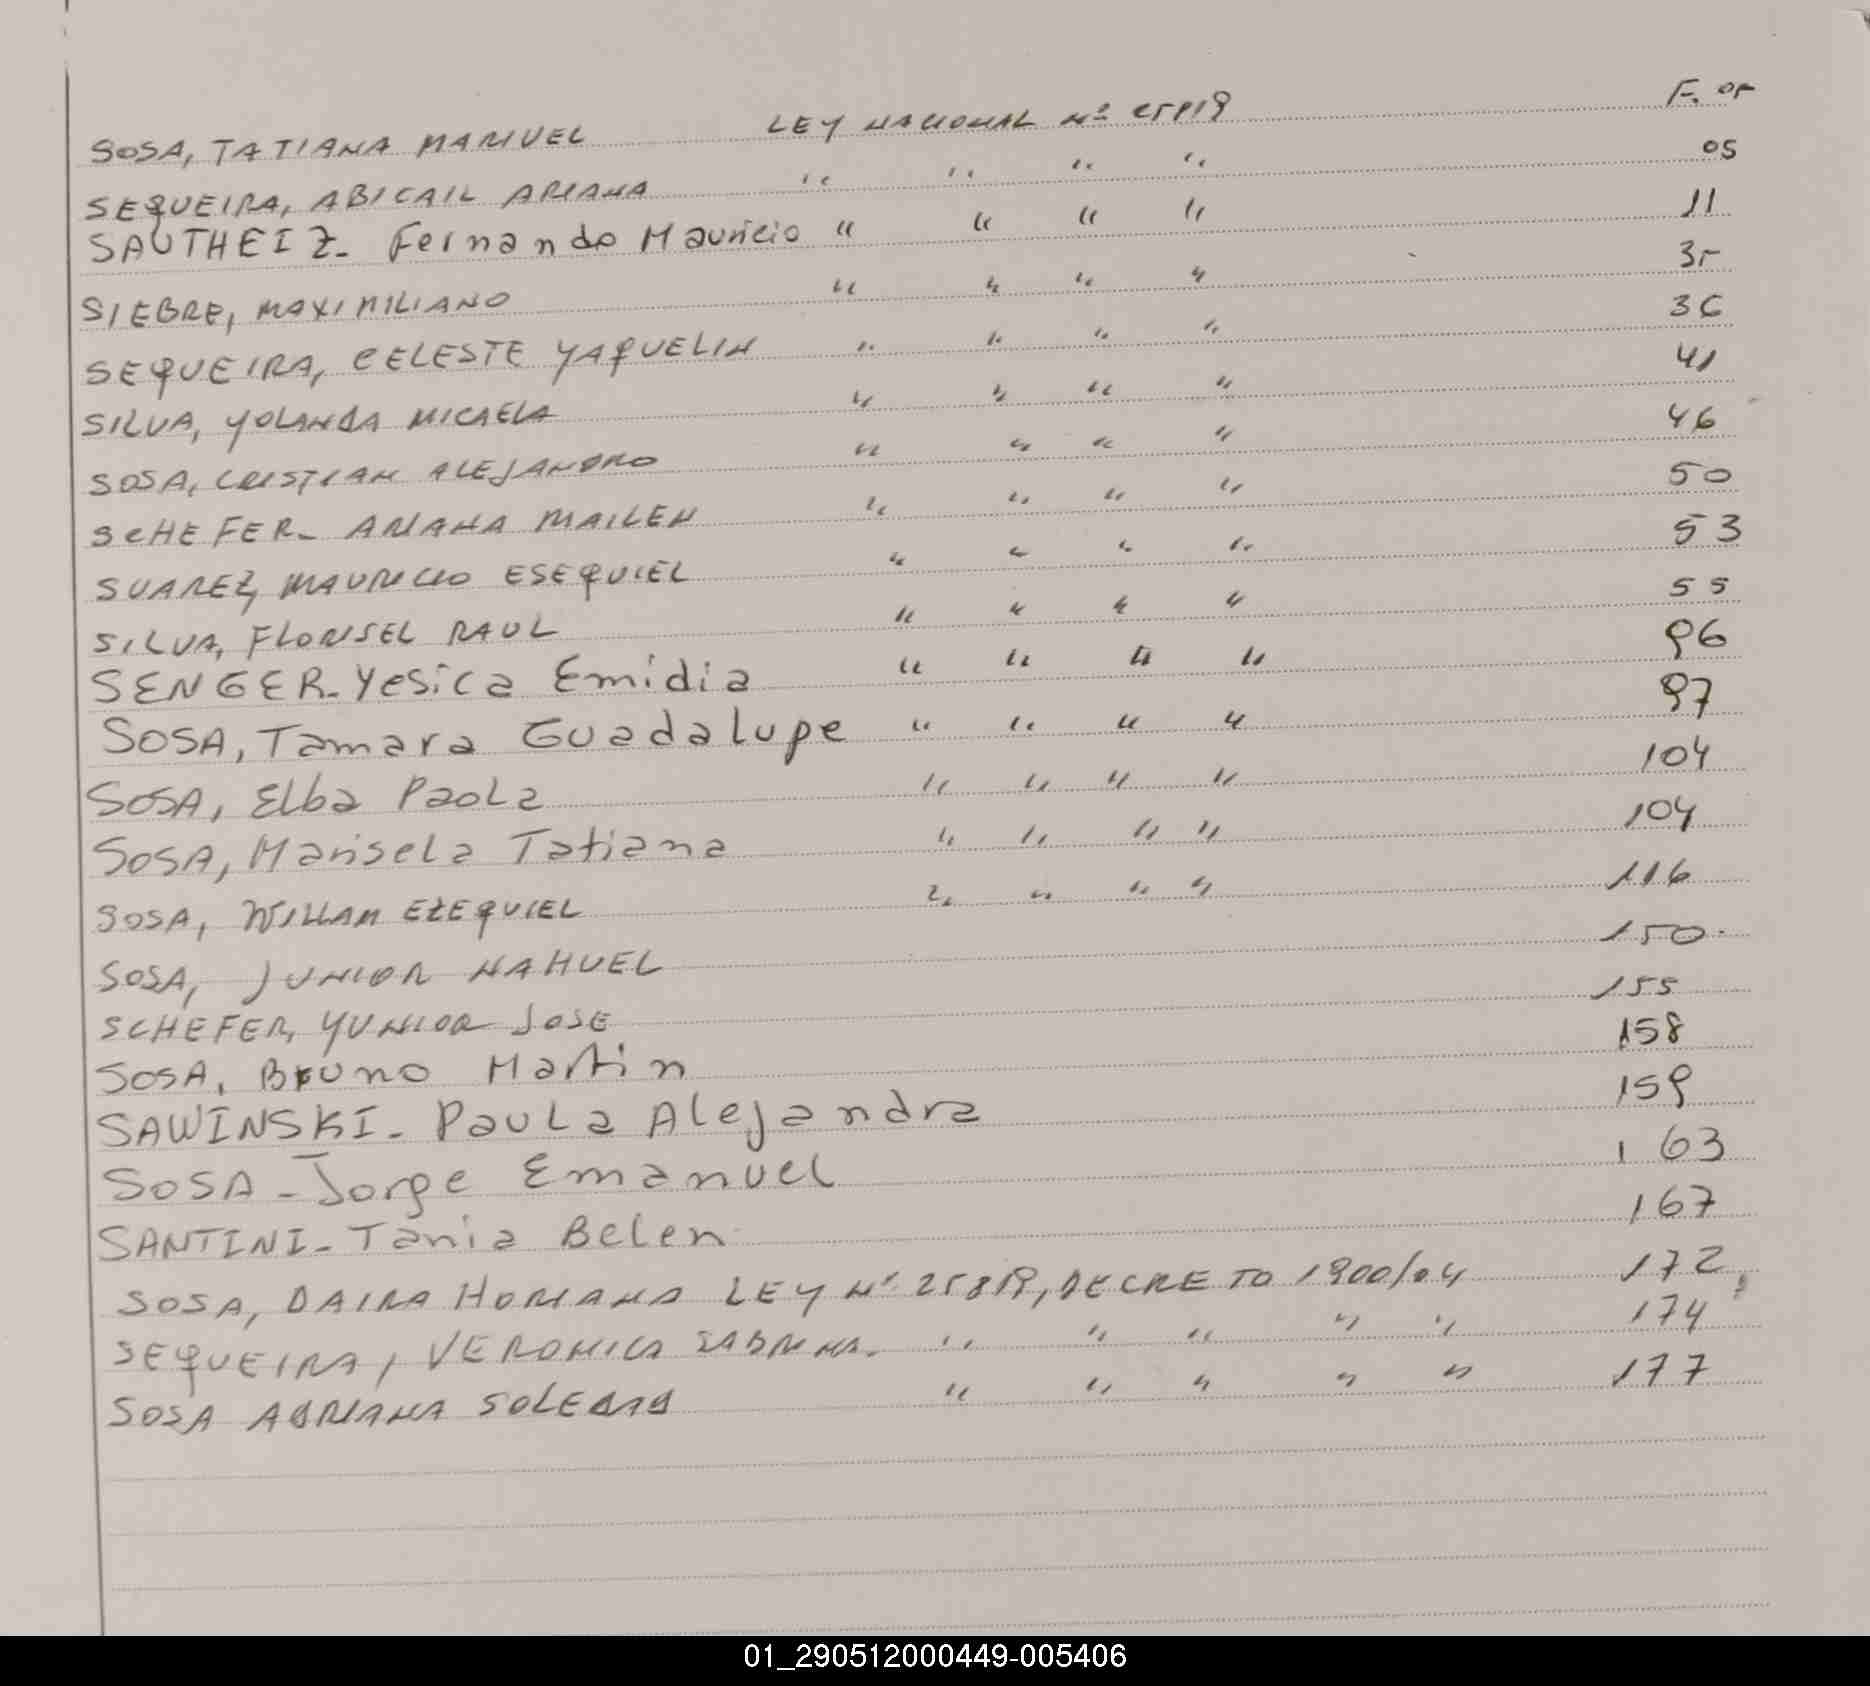 SOSA, TATIANA MARIUEL LEY NACIONAL Nº 25819 F. 05
SEQUEIRA, ABICAIL ARIANA " " " " 05
SAUTHEIZ- Fernando Mauricio " " " " 11
SIEBRE, MAXIMILIANO " " " " 35
SEQUEIRA, CELESTE YAQUELIN " " " " 36
SILVA, YOLANDA MICAELA " " " " 41
SOSA, CRISTIAN ALEJANDRO " " " " 46
SCHEFER- ARIANA MAILEN " " " " 50
SUAREZ, MAURICIO ESEQUIEL " " " " 53
SILVA, FLORISEL RAUL " " " " 55
SENGER-Yesica Emidia " " " " 96
SOSA, Tamara Guadalupe " " " " 97
SOSA, Elba Paola " " " " 104
SOSA, Marisela Tatiana " " " " 104
SOSA, WILLIAM EZEQUIEL " " " " 116
SOSA, JUNIOR NAHUEL 150.
SCHEFER, YUNIOR JOSE 155
SOSA, Bruno Martin 158
SAWINSKI- Paula Alejandra 159
SOSA - Jorge Emanuel 163
SANTINI- Tania Belen 167
SOSA, DAIRA HORIANA LEY Nº 25819, DECRETO 1900/04 172
SEQUEIRA, VERONICA SABRINA. " " " " " 174
SOSA ADRIANA SOLEDAD " " " " " 177
01_290512000449-005406